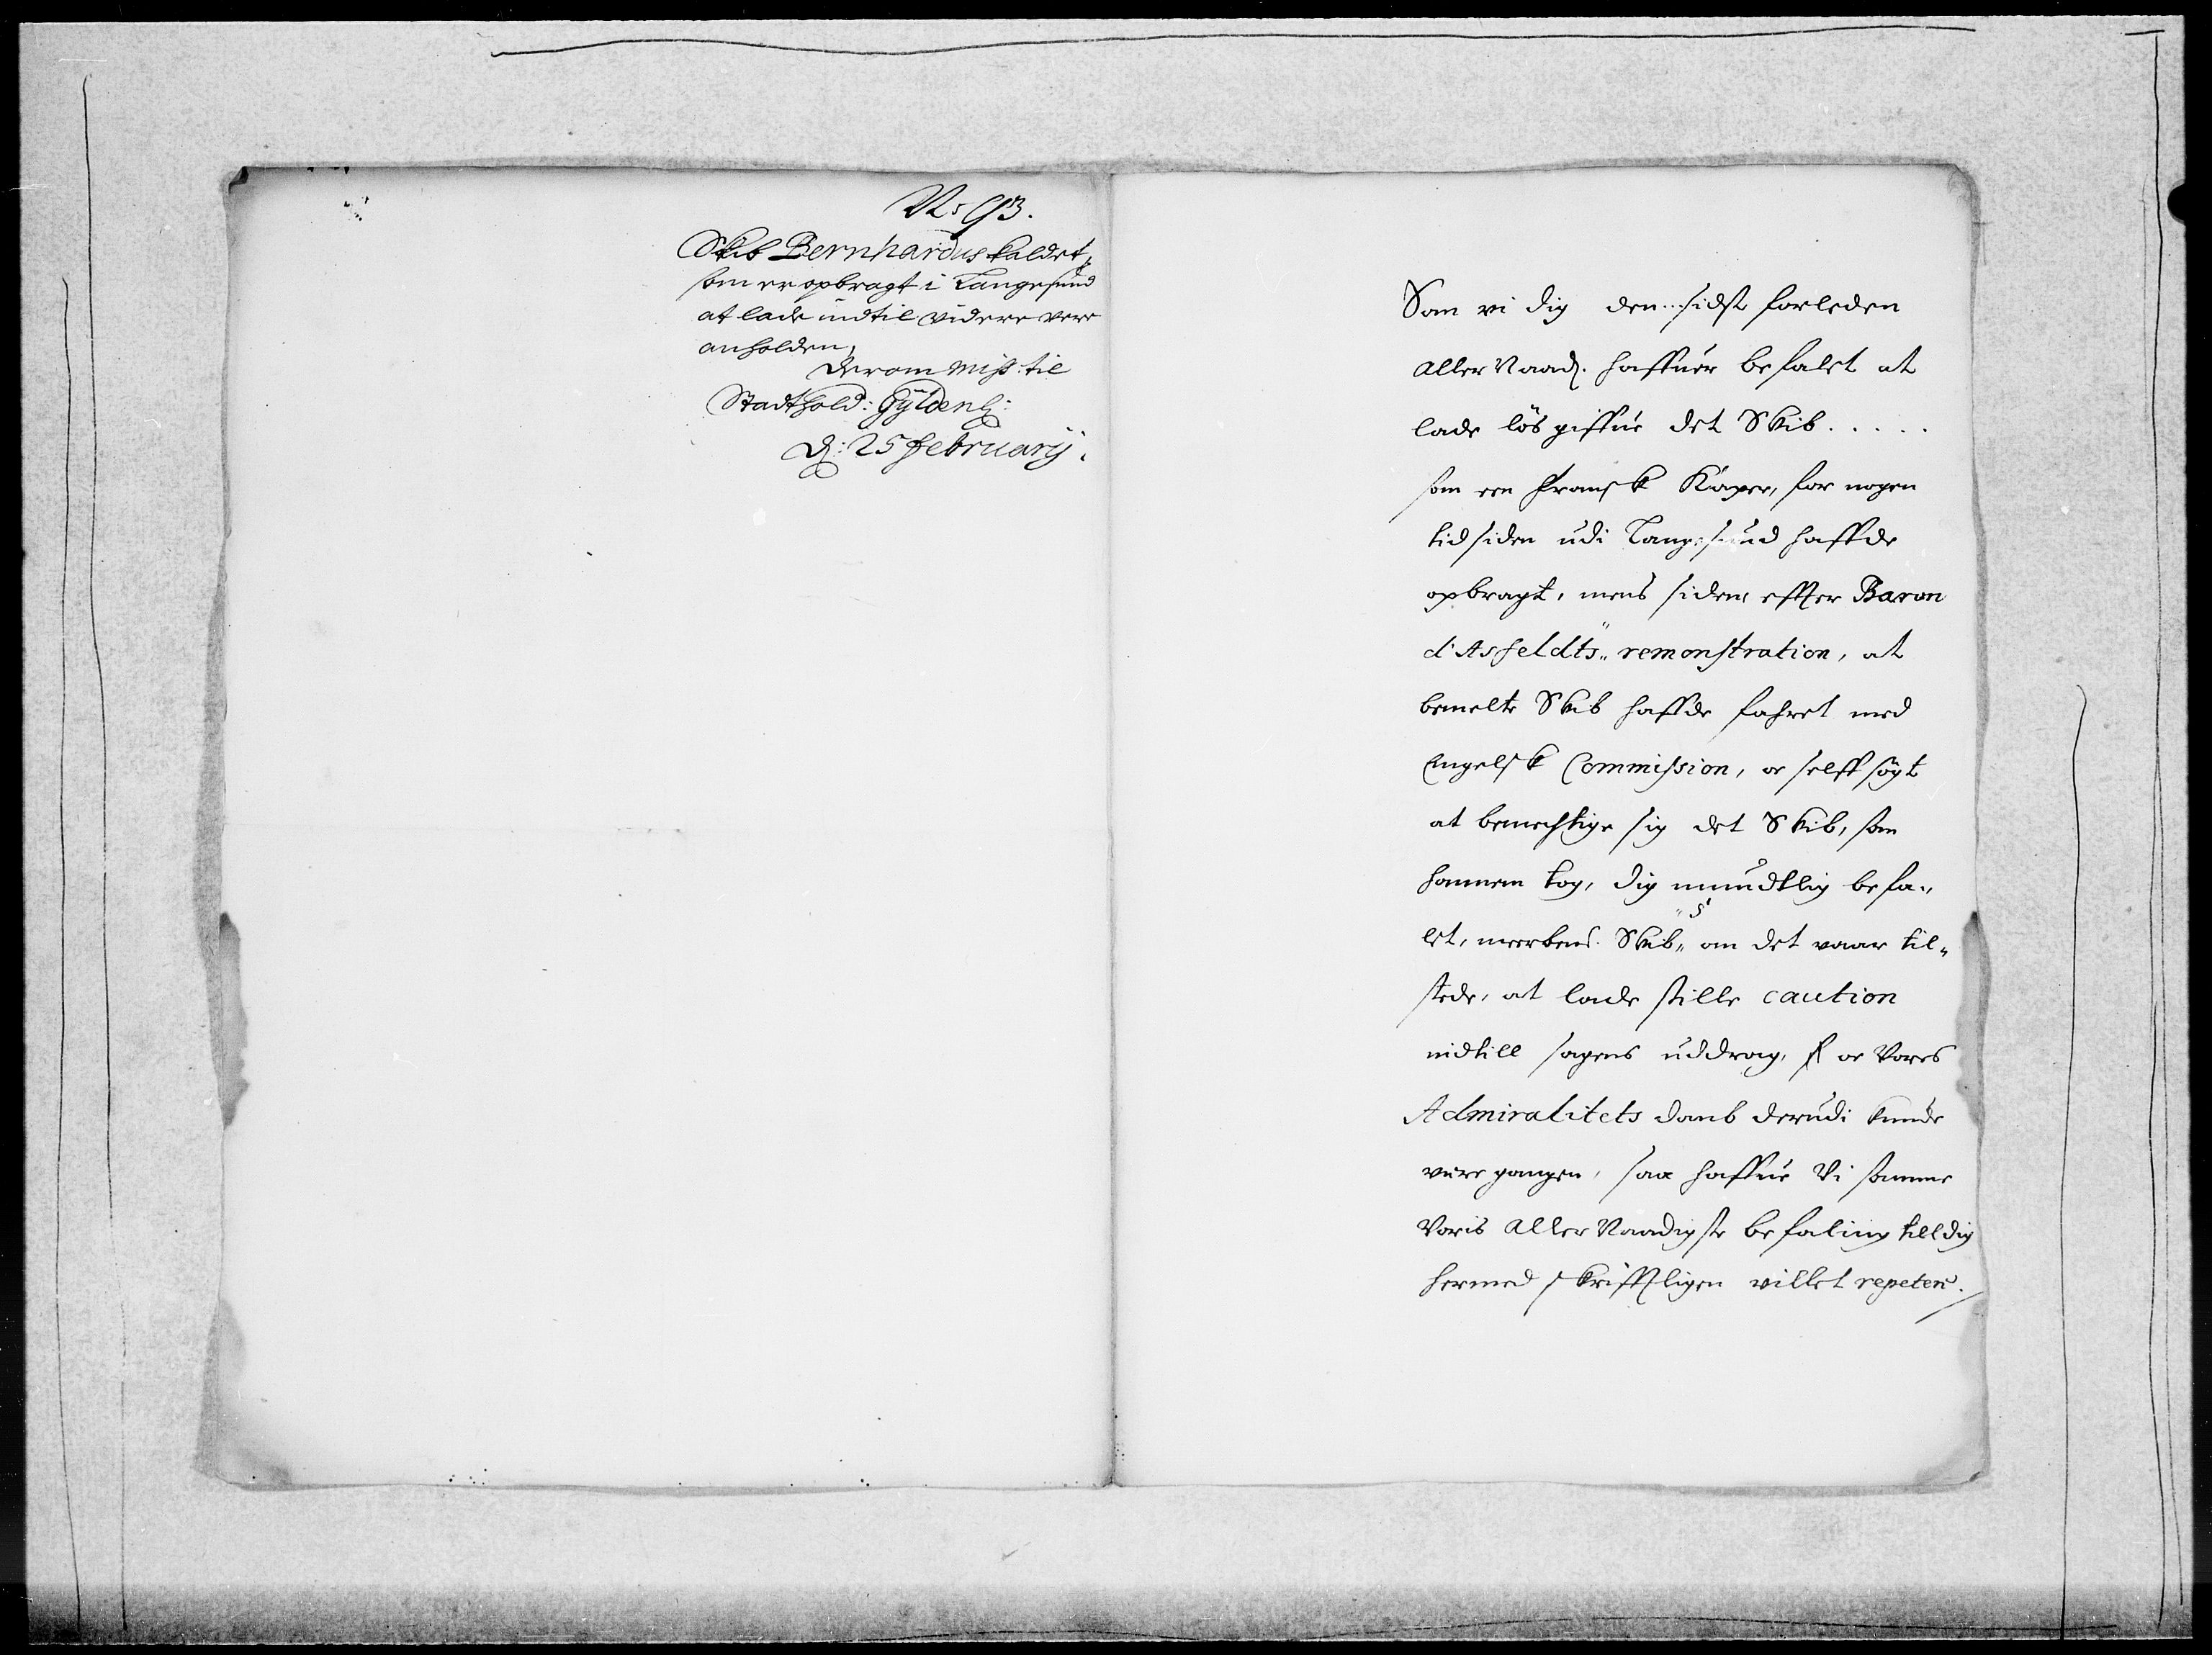 N: 93.
Skib Bernhardus kaldet,
som er opbragt i Langesund
at lade indtil videre vere
anholden,
Derom Miss: til
Stadthold: Gyldenl:
D: 25 February.
Som vi dig den... sidst forleden
aller Naad. haffuer befalet at
lade lös giffue det Skib.....
som een Fransk Kaper, for nogen
tid siden udi Langesund haffde
opbragt, mens siden effter Baron
d'Asfeldts remonstration, at
bemelte Skib haffde fahret med
Engelsk Commission, oc selff sögt
at bemechtige sig det Skib, som
hannem tog, dig mundtlig befa-
let, Skibs om det vaar til-
stede, at lade stille caution
indtill sagens uddrag, oc Vores
Admiralitets domb derudi kunde
vere gangen, saa haffue Vi samme
Voris aller Naadigste befaling till dig
hermed skrifftligen villet repetere.